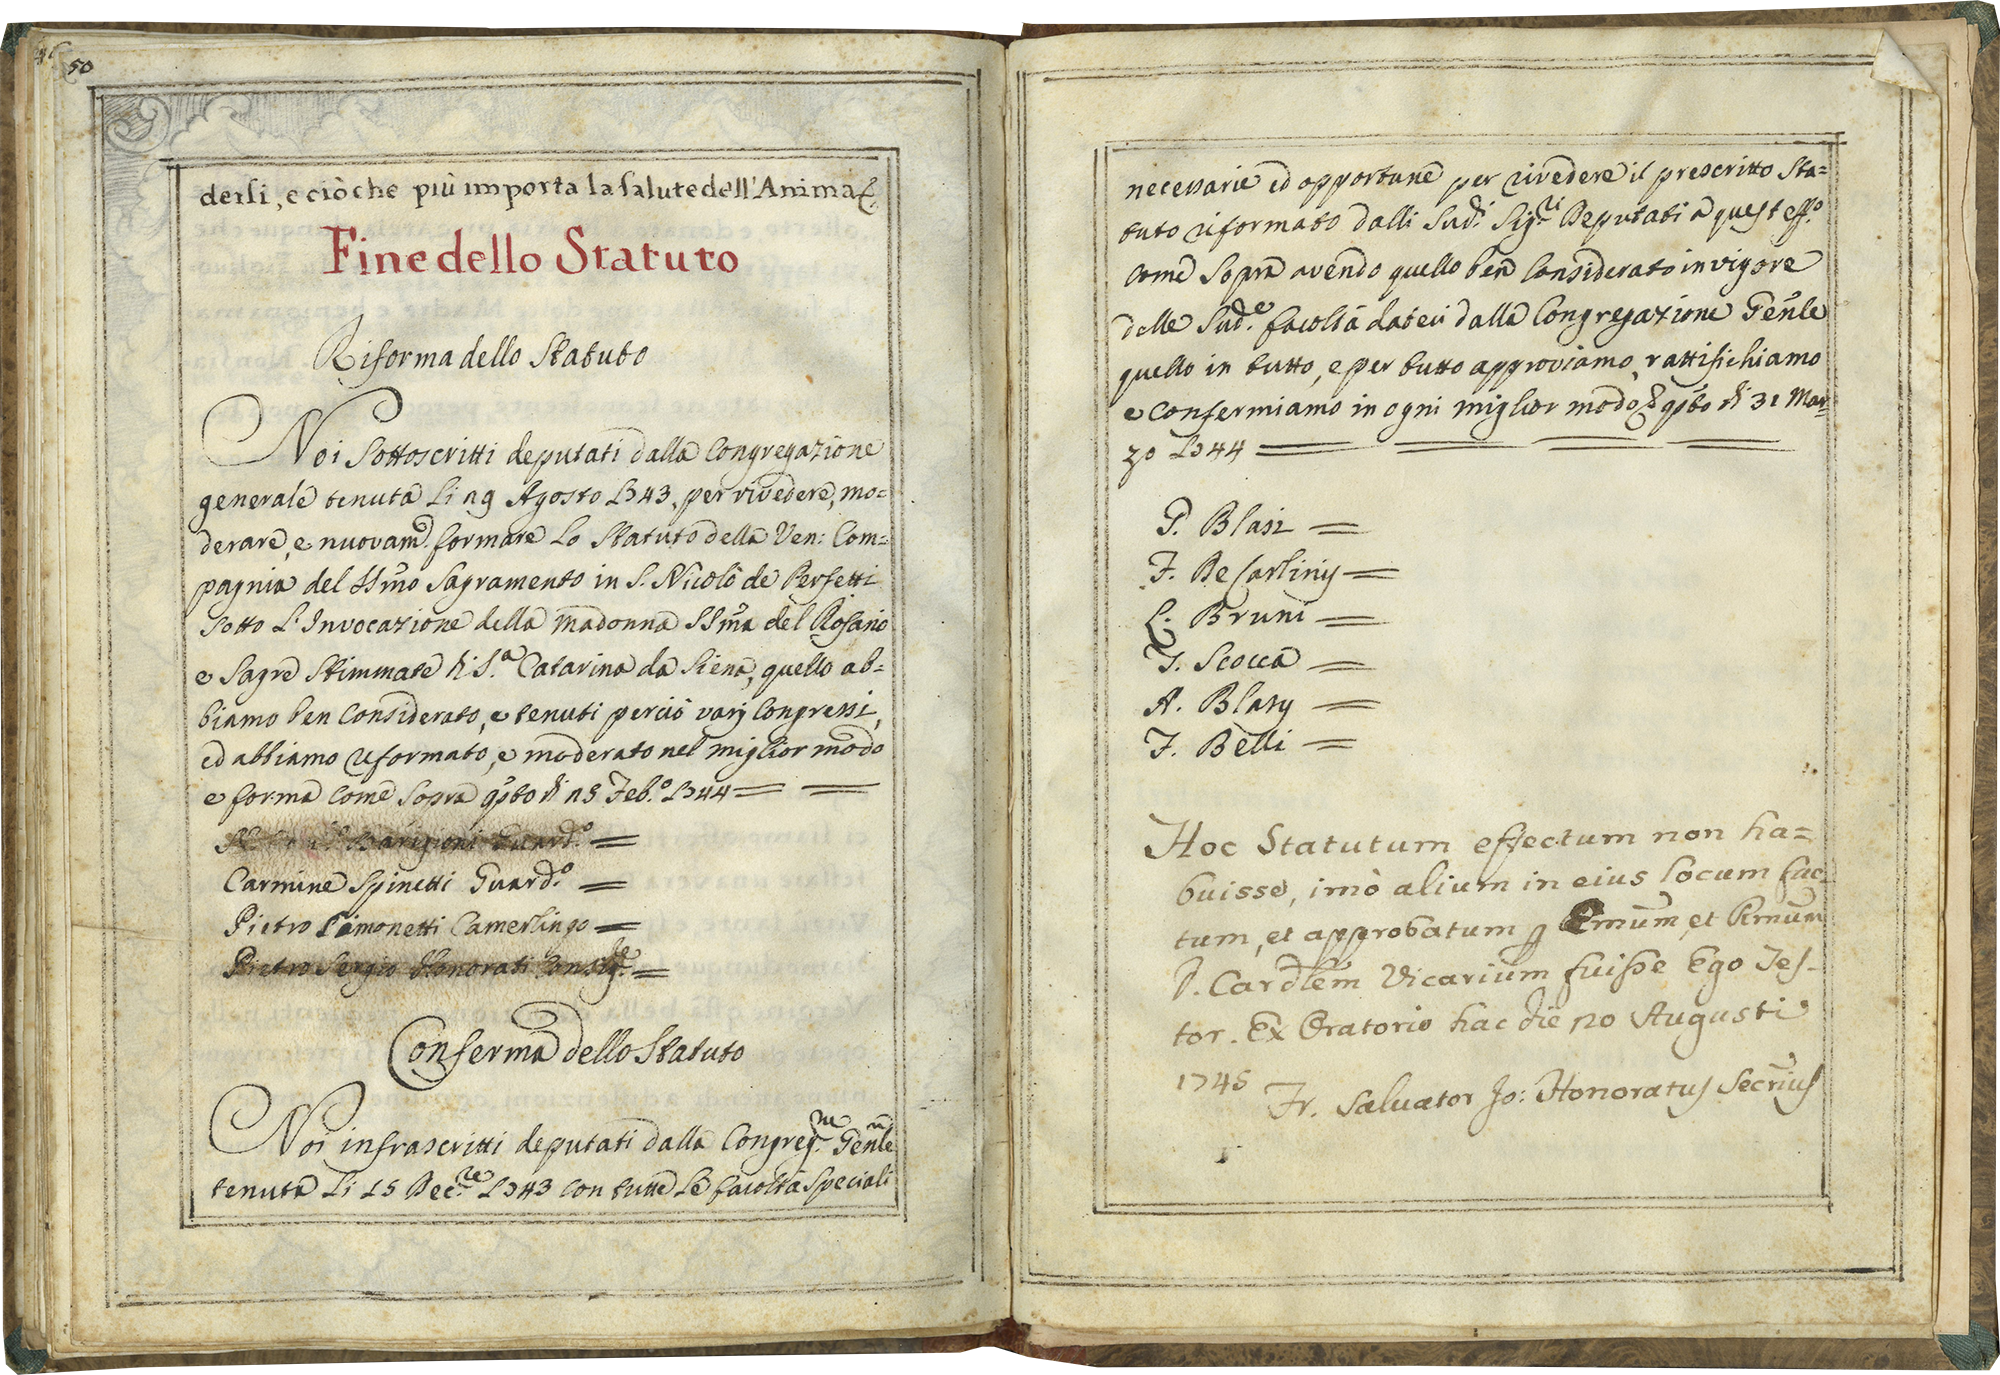 50
dersi, e ciò che più importa la salute dell'Anima
Fine dello Statuto
Riforma dello Statuto
Noi Sottoscritti deputati dalla Congregazione
generale tenuta li 29 Agosto 1743, per rivedere, mo=
derare, e nuovam.e formare lo Statuto della Ven: Com=
pagnia del SSmo Sagramento in S. Nicolò de Perfetti
sotto l'Invocazione della Madonna SSma del Rosario
e Sagre Stimmate di S.a Catarina da Siena, quello ab=
biamo ben Considerato, e tenuti perciò varj Congressi,
ed abbiamo riformato, e moderato nel miglior modo
e forma come sopra qsto dì 25 Feb.o 1744
Barigioni Guard.o
Carmine Spinetti Guard.o
Pietro Simonetti Camerlingo
Pietro Sergio Honorati Consig.re
Conferma dello Statuto
Noi infrascritti deputati dalla Congreg.ne Genle
tenuta li 15 Dec.re 1743 con tutte le facoltà speciali
necessarie ed opportune per rivedere il prescritto Sta=
tuto riformato dalli Sud.i Sig.ri Deputati a quest'eff.o
come sopra avendo quello ben Considerato in vigore
delle Sud.e facoltà dateci dalla Congregazione Genle
quello in tutto, e per tutto approviamo, rattifichiamo
e confermiamo in ogni miglior modo qsto dì 31 Mar=
zo 1744
P. Blasi
F. De Carlinis
L. Bruni
F. Scocca
A. Blasy
F. Belli
Hoc Statutum effectum non ha=
buisse, imò alium in eius locum fac=
tum, et approbatum p Emum, et Rmum
D. Cardlem Vicarium fuisse Ego Tes=
tor. Ex Oratorio hac die 20 Augusti
1745 Fr. Salvator Jo: Honoratus Secrius